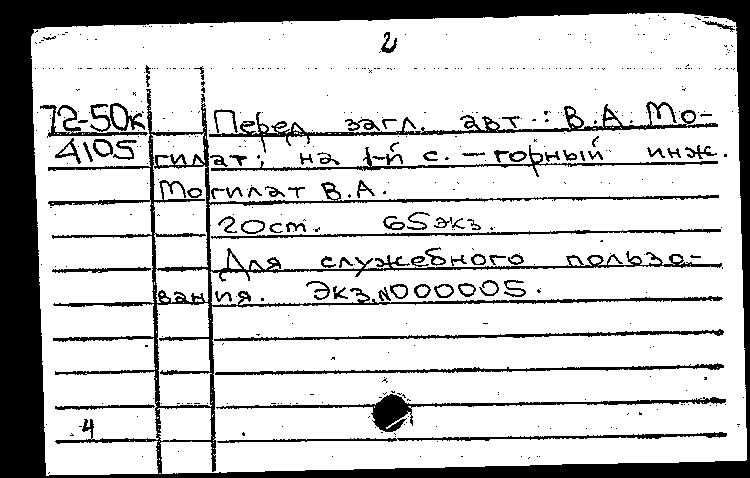 2
72-50к Перед загл. авт.: В.А. Мо-
4105 гилат; на 1-й с. – горный инж.
Могилат В.А.
20ст. 65экз.
Для служебного пользо-
вания. Экз.N000005.
4